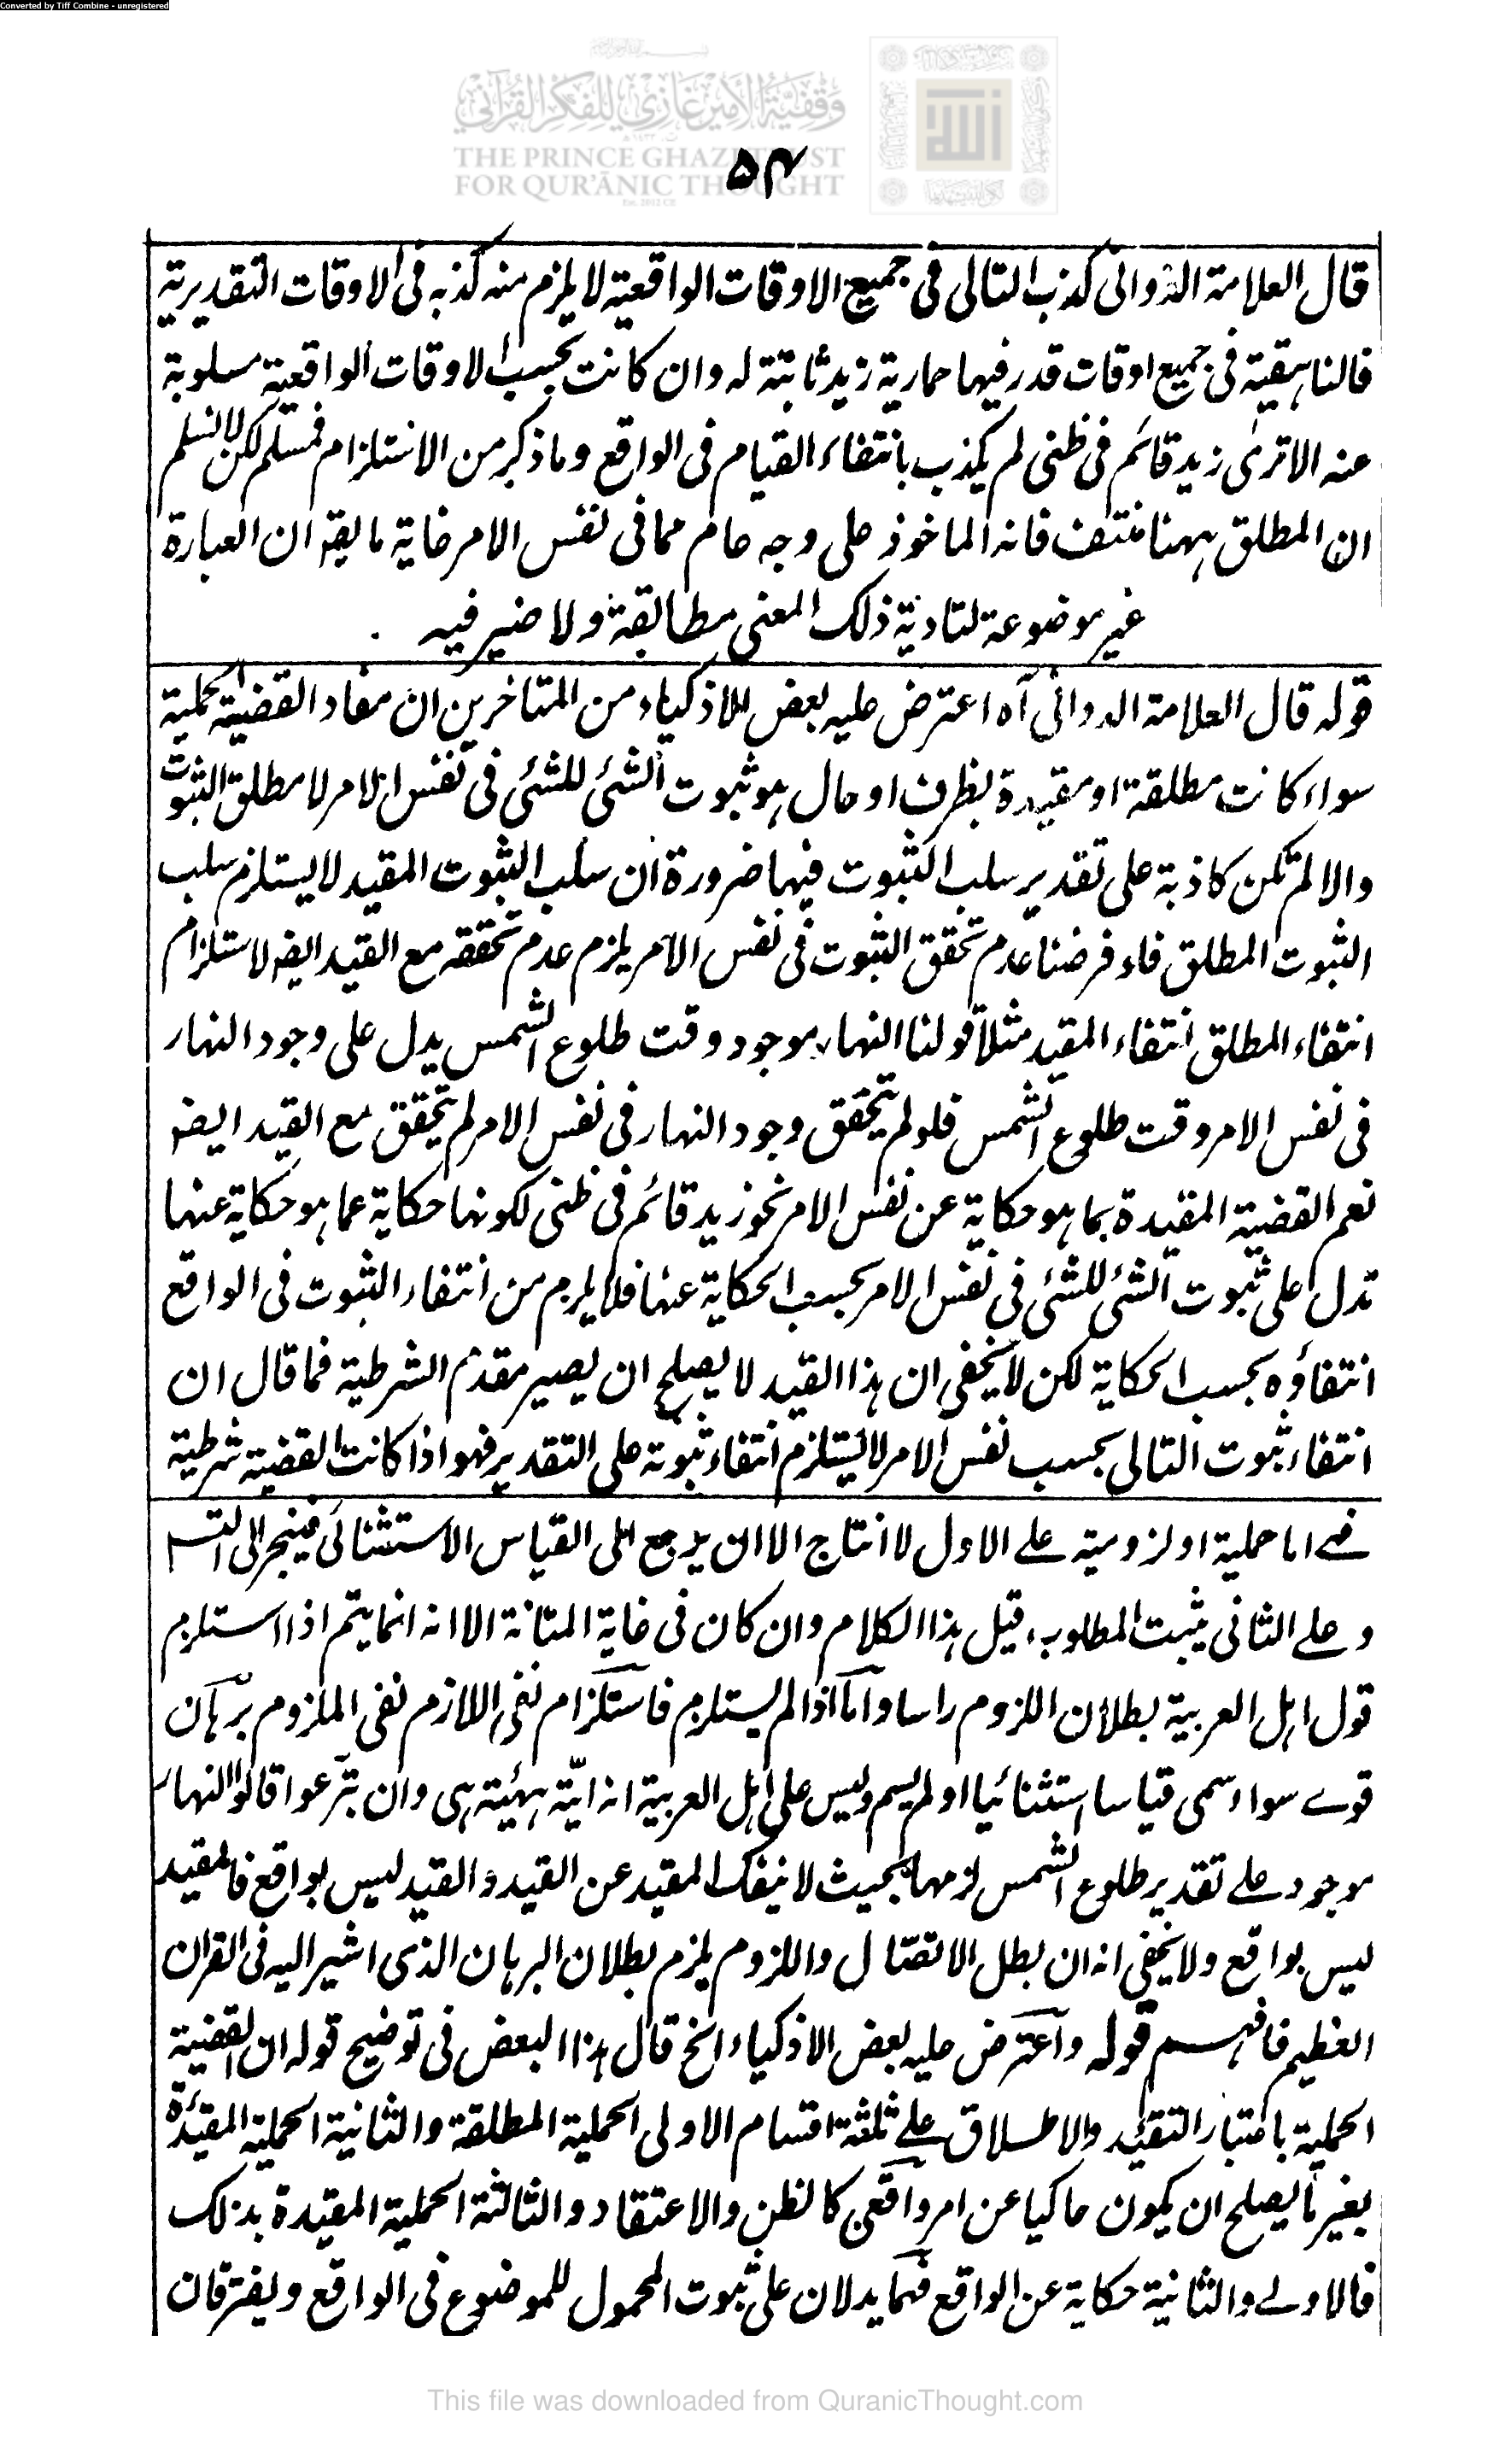 Converted by Tiff Combine - unregistered
وَقْفِيَّةُ الأَمِيرِ غَازِي لِلْفِكْرِ القُرْآنِيِّ
THE PRINCE GHAZI TRUST
FOR QUR'ĀNIC THOUGHT
الله
۵۴
قال العلامة الدوانى كذب التالى فى جميع الاوقات الواقعية لا يلزم منه كذبه فى الاوقات التقديرية
فالناهقية فى جميع اوقات قدر فيها حمارية زيد ثابتة له وان كانت بحسب الاوقات الواقعية مسلوبة
عنه الا ترى زيد قائم فى ظنى لم يكذب بانتفاء القيام فى الواقع وما ذكر من الاستلزام فمسلم لكن لا نسلم
ان المطلق ههنا منتف فانه الماخوذ على وجه عام مما فى نفس الامر غاية ما يقر ان العبارة
غير موضوعة لتادية ذلك المعنى مطابقة ولا ضير فيه
قوله قال العلامة الدوانى آه اعترض عليه بعض للاذكياء من المتاخرين ان مفاد القضية الحملية
سواء كانت مطلقة او مقيدة بظرف او حال هو ثبوت الشئ للشئ فى نفس الامر لا مطلق الثبوت
والا لم تكن كاذبة على تقدير سلب الثبوت فيها ضرورة ان سلب الثبوت المقيد لا يستلزم سلب
الثبوت المطلق فاء فرضنا عدم تحقق الثبوت فى نفس الامر يلزم عدم تحققه مع القيد ايضا لاستلزام
انتفاء المطلق انتفاء المقيد مثلا قولنا النهار موجود وقت طلوع الشمس يدل على وجود النهار
فى نفس الامر وقت طلوع الشمس فلو لم يتحقق وجود النهار فى نفس الامر لم يتحقق مع القيد ايضا
نعم القضية المقيدة بما هو حكاية عن نفس الامر نحو زيد قائم فى ظنى لكونها حكاية عما هو حكاية عنها
تدل على ثبوت الشئ للشئ فى نفس الامر بحسب الحكاية عنها فلا يلزم من انتفاء الثبوت فى الواقع
انتفاؤه بحسب الحكاية لكن لا يخفى ان هذا القيد لا يصلح ان يصير مقدم الشرطية فما قال ان
انتفاء ثبوت التالى بحسب نفس الامر لا يستلزم انتفاء ثبوته على التقدير فهو اذا كانت القضية شرطية
فے اما حملية او لزومية علے الاول لا انتاج الا ان يرجع الى القياس الاستثنائى فينجر الى التسم
وعلے الثانى يثبت المطلوب، قيل هذا الكلام وان كان فى غاية المتانة الا انه انما يتم اذا استلزم
قول اهل العربية بطلان اللزوم راسا واما اذا لم يستلزم فاستلزام نفى اللازم نفى الملزوم برهان
قوے سواء سمى قياسا استثنائيا او لم يسم وليس على اهل العربية انه اية هيئة هى وان تبرعوا قالوا النهار
موجود علے تقدير طلوع الشمس لزمها بحيث لا ينفك المقيد عن القيد والقيد ليس بواقع فالمقيد
ليس بواقع ولا يخفى انه ان بطل الاتصال واللزوم يلزم بطلان البرهان الذى اشير اليه فى القران
العظيم فافهم قوله واعترض عليه بعض الاذكياء الخ قال هذا البعض فى توضيح قوله ان القضية
الحملية باعتبار التقئيد والاطلاق علے ثلثة اقسام الاولى الحملية المطلقة والثانية الحملية المقيدة
بغير ما يصلح ان يكون حاكيا عن امر واقعى كالظن والاعتقاد والثالثة الحملية المقيدة بذلك
فالاولے والثانية حكاية عن الواقع فهما يدلان على ثبوت المحمول للموضوع فى الواقع ويفترقان
This file was downloaded from QuranicThought.com